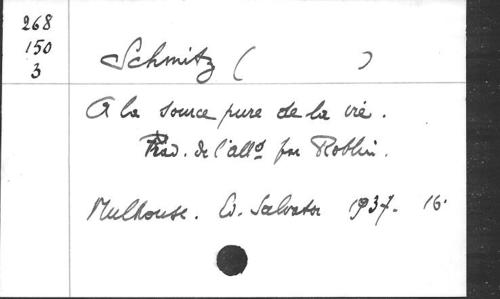 268
150
3
Schmitz ( )
A la source pure de la vie.
Trad. de l'alld par Roblin.
Mulhouse. Ed. Salvator 1937. 16°